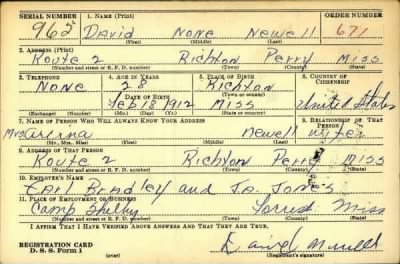 SERIAL NUMBER 1. NAME (Print) ORDER NUMBER
962 David None Newell 671
(First) (Middle) (Last)
2. ADDRESS (Print)
Route 2 Richton Perry Miss
(Number and street or R. F. D. number) (Town) (County) (State)
3. TELEPHONE 4. AGE IN YEARS 5. PLACE OF BIRTH 6. COUNTRY OF CITIZENSHIP
None 28 Richton
DATE OF BIRTH (Town or county)
Feb 18 1912 Miss United States
(Exchange) (No.) (Mo.) (Day) (Yr.) (State or country)
7. NAME OF PERSON WHO WILL ALWAYS KNOW YOUR ADDRESS 8. RELATIONSHIP OF THAT PERSON
Mrs Newell wife
(Mr., Mrs., Miss) (First) (Middle) (Last)
9. ADDRESS OF THAT PERSON
Route 2 Richton Perry Miss
(Number and street or R. F. D. number) (Town) (County) (State)
10. EMPLOYER'S NAME
Earl Bradley and J.A. Jones
11. PLACE OF EMPLOYMENT OR BUSINESS
Camp Shelby Forrest Miss
(Number and street or R. F. D. number) (Town) (County) (State)
I AFFIRM THAT I HAVE VERIFIED ABOVE ANSWERS AND THAT THEY ARE TRUE.
REGISTRATION CARD David Newell
D. S. S. Form 1 (over) (Registrant's signature)